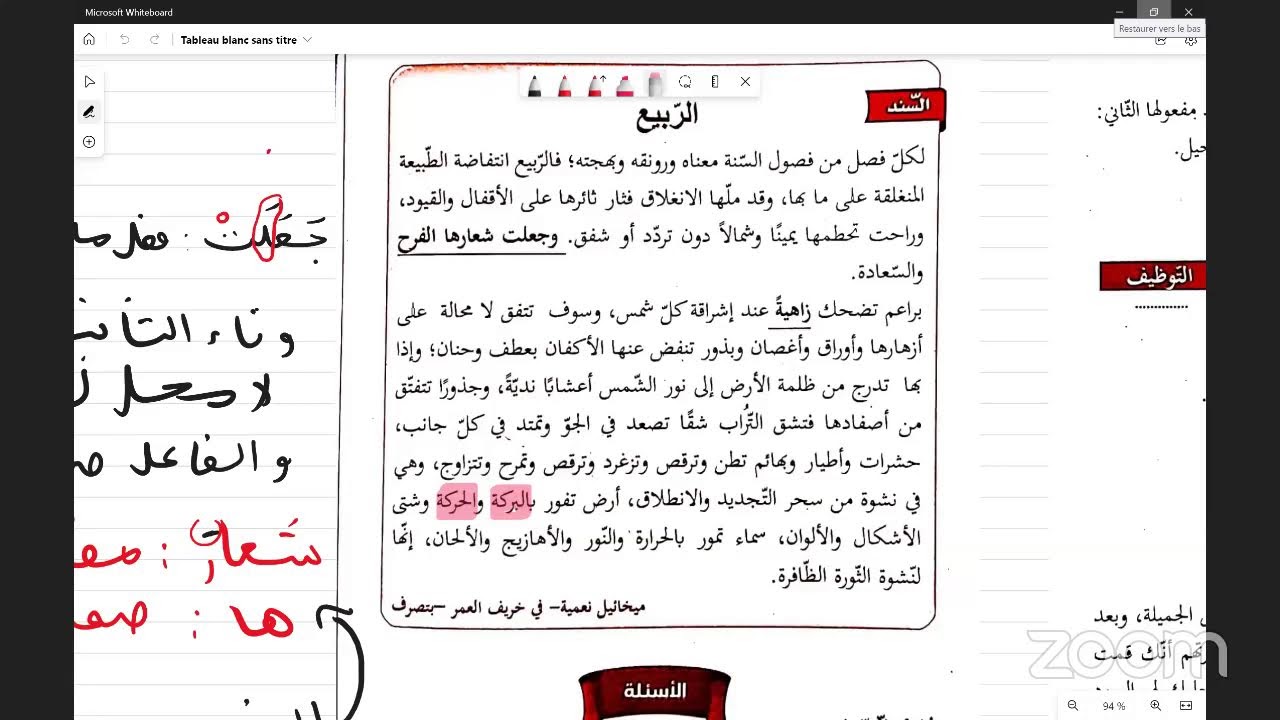 Microsoft Whiteboard
Restaurer vers le bas
Tableau blanc sans titre
السّند
الرّبيع
لكلّ فصل من فصول السّنة معناه ورونقه وبهجته؛ فالرّبيع انتفاضة الطّبيعة
المنغلقة على ما بها، وقد ملّها الانغلاق فثار ثائرها على الأقفال والقيود،
وراحت تحطمها يمينًا وشمالاً دون تردّد أو شفق. وجعلت شعارها الفرح
والسّعادة.
براعم تضحك زاهيةً عند إشراقة كلّ شمس، وسوف تتفق لا محالة على
أزهارها وأوراق وأغصان وبذور تنفض عنها الأكفان بعطف وحنان؛ وإذا
بها تدرج من ظلمة الأرض إلى نور الشّمس أعشابًا نديّةً، وجذورًا تتفتّق
من أصفادها فتشق التُّراب شقًا تصعد في الجوّ وتمتد في كلّ جانب،
حشرات وأطيار وبهائم تطن وترقص وتزغرد وترقص وتمرح وتتزاوج، وهي
في نشوة من سحر التّجديد والانطلاق، أرض تفور بالبركة والحركة وشتى
الأشكال والألوان، سماء تمور بالحرارة والنّور والأهازيج والألحان، إنّها
لنّشوة الثّورة الظّافرة.
ميخائيل نعمية- في خريف العمر -بتصرف
الأسئلة
جَعَلَتْ : فعل
وتاء التأنيث
لا محل
والفاعل
شعار :
ها :
. مفعولها الثّاني:
التّوظيف
الجميلة، وبعد
أنّك قمت
zoom
94 %